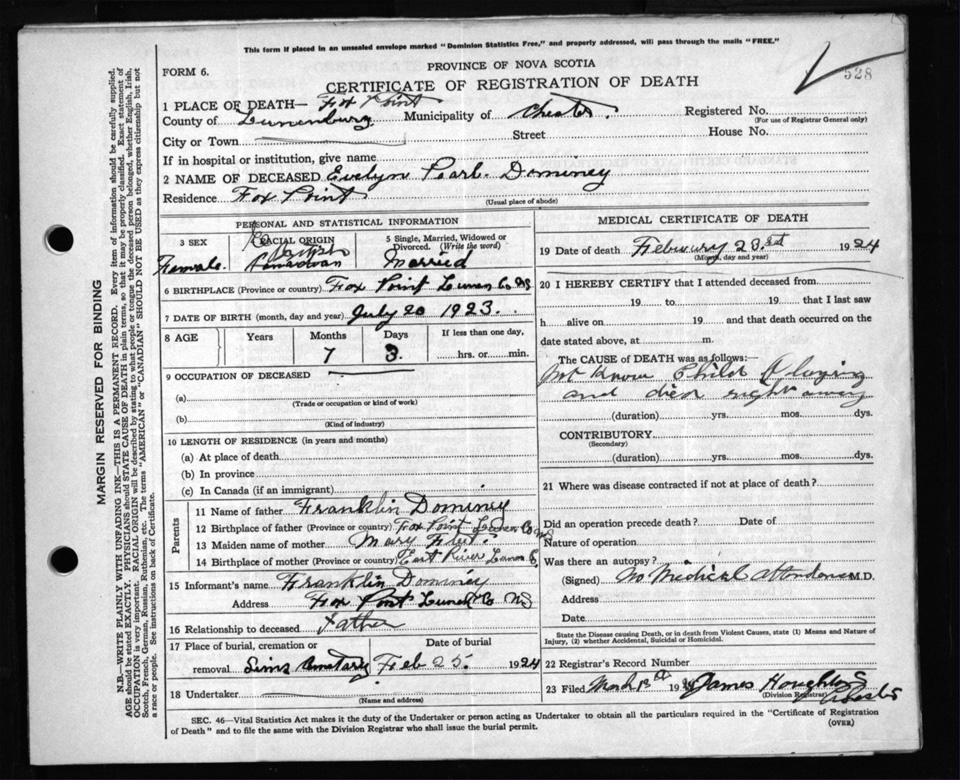 This form if placed in an unsealed envelope marked "Dominion Statistics Free," and properly addressed, will pass through the mails "FREE."
PROVINCE OF NOVA SCOTIA
528
FORM 6.
CERTIFICATE OF REGISTRATION OF DEATH
1 PLACE OF DEATH— Fox Point
County of Lunenburg Municipality of Chester Registered No.
(For use of Registrar General only)
City or Town Street House No.
If in hospital or institution, give name
2 NAME OF DECEASED Evelyn Pearl Dominey
Residence Fox Point (Usual place of abode)
PERSONAL AND STATISTICAL INFORMATION
3 SEX RACIAL ORIGIN 5 Single, Married, Widowed or Divorced. (Write the word)
Female British Canadian Married
6 BIRTHPLACE (Province or country) Fox Point Lunen Co NS
7 DATE OF BIRTH (month, day and year) July 20 1923
8 AGE Years Months Days If less than one day,
7 3 hrs. or min.
9 OCCUPATION OF DECEASED
(a)
(Trade or occupation or kind of work)
(b)
(Kind of industry)
10 LENGTH OF RESIDENCE (in years and months)
(a) At place of death
(b) In province
(c) In Canada (if an immigrant)
Parents
11 Name of father Franklin Dominey
12 Birthplace of father (Province or country) Fox Point Lunen Co NS
13 Maiden name of mother Mary
14 Birthplace of mother (Province or country) East River Lunen C
15 Informant's name Franklin Dominey
Address Fox Point Lunen Co NS
16 Relationship to deceased Father
17 Place of burial, cremation or Date of burial
removal Sims Feb 25 1924
18 Undertaker
(Name and address)
MEDICAL CERTIFICATE OF DEATH
19 Date of death Febuury 23rd 1924
(Month, day and year)
20 I HEREBY CERTIFY that I attended deceased from
19 to 19 that I last saw
h alive on 19 and that death occurred on the
date stated above, at m.
The CAUSE OF DEATH was as follows:
not know Child Playing
and died right away
(duration) yrs. mos. dys.
CONTRIBUTORY
(Secondary)
(duration) yrs. mos. dys.
21 Where was disease contracted if not at place of death?
Did an operation precede death? Date of
Nature of operation
Was there an autopsy?
(Signed) No Medical M.D.
Address
Date
State the Disease causing Death, or in death from Violent Causes, state (1) Means and Nature of
Injury, (2) whether Accidental, Suicidal or Homicidal.
22 Registrar's Record Number
23 Filed March 19 James Houghton
(Division Registrar) Chester
SEC. 46—Vital Statistics Act makes it the duty of the Undertaker or person acting as Undertaker to obtain all the particulars required in the "Certificate of Registration
of Death" and to file the same with the Division Registrar who shall issue the burial permit.
(OVER)
MARGIN RESERVED FOR BINDING
N.B.—WRITE PLAINLY WITH UNFADING INK—THIS IS A PERMANENT RECORD. Every item of information should be carefully supplied.
AGE should be stated EXACTLY. PHYSICIANS should STATE CAUSE OF DEATH in plain terms, so that it may be properly classified. Exact statement of
OCCUPATION is very important. RACIAL ORIGIN will be described by stating to what people or tongue the deceased person belonged, whether English, Irish,
Scotch, French, German, Russian, Ruthenian, etc. The terms "AMERICAN" or "CANADIAN" SHOULD NOT BE USED as they express citizenship but not
a race or people. See instructions on back of Certificate.